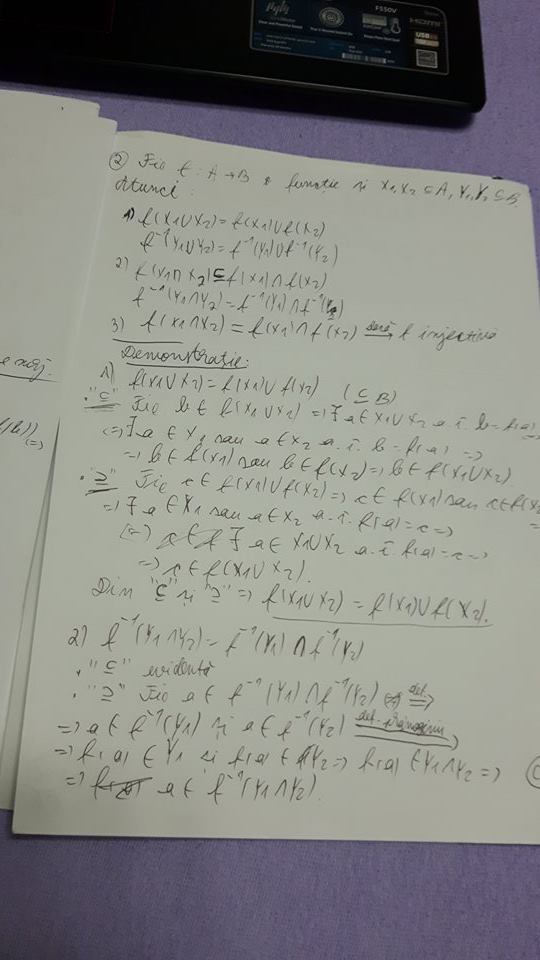 F550V
HDMI
USB
② Fie f: A→B o funcție și X1,X2 ⊆ A, Y1,Y2 ⊆ B.
Atunci:
1) f(X1∪X2) = f(X1)∪f(X2)
f⁻¹(Y1∪Y2) = f⁻¹(Y1)∪f⁻¹(Y2)
2) f(X1∩X2) ⊆ f(X1)∩f(X2)
f⁻¹(Y1∩Y2) = f⁻¹(Y1)∩f⁻¹(Y2)
3) f(X1∩X2) = f(X1)∩f(X2) dacă f injectivă
Demonstrație:
1) f(X1∪X2) = f(X1)∪f(X2) (⊆B)
"⊆" Fie b∈ f(X1∪X2) => ∃ a∈X1∪X2 a.î. b=f(a)
<=> ∃ a∈X1 sau a∈X2 a.î. b=f(a) =>
=> b∈f(X1) sau b∈f(X2) => b∈f(X1∪X2)
"⊇" Fie c∈f(X1)∪f(X2) => c∈f(X1) sau c∈f(X2)
=> ∃ a∈X1 sau a∈X2 a.î. f(a)=c =>
∃ a∈ X1∪X2 a.î. f(a)=c =>
=> c∈f(X1∪X2).
Din "⊆" și "⊇" => f(X1∪X2) = f(X1)∪f(X2).
2) f⁻¹(Y1∩Y2) = f⁻¹(Y1) ∩ f⁻¹(Y2)
"⊆" evidentă
"⊇" Fie a∈ f⁻¹(Y1)∩f⁻¹(Y2) def =>
=> a∈f⁻¹(Y1) și a∈f⁻¹(Y2) def.
=> f(a)∈Y1 și f(a)∈Y2 => f(a)∈Y1∩Y2 =>
=> a∈ f⁻¹(Y1∩Y2).